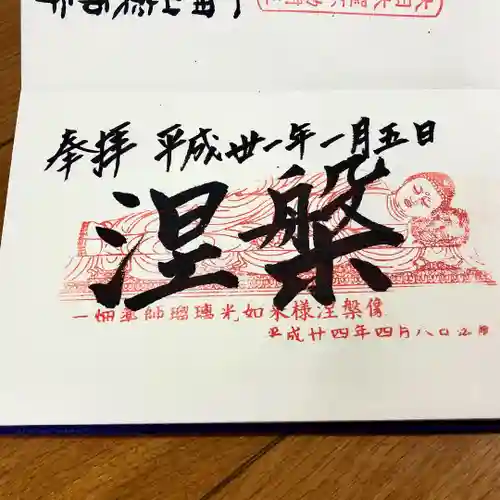 奉拝 平成廿一年一月五日
涅槃
一畑薬師瑠璃光如来様涅槃像
平成廿四年四月八日